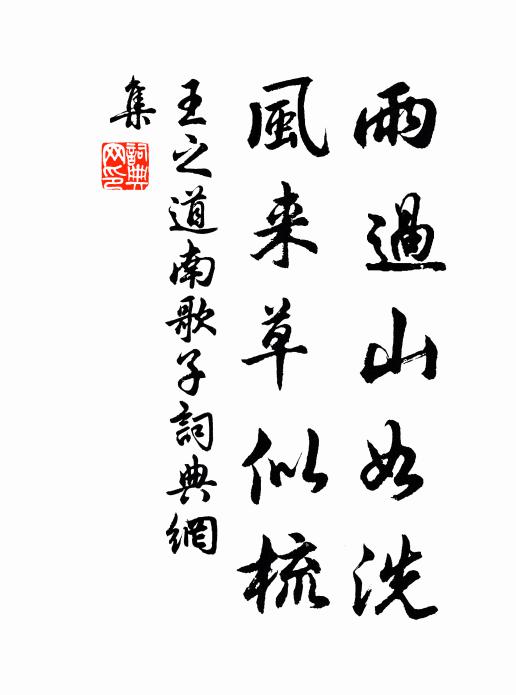 雨過山如洗
風来草似梳
王之道南歌子詞典網
集
詞典網印